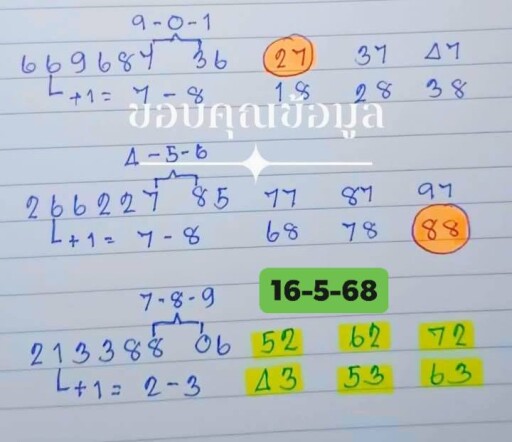 9-0-1
669687 36 27 37 47
+1= 7-8 18 28 38
ขอบคุณข้อมูล
4-5-6
266227 85 77 87 97
+1= 7-8 68 78 88
16-5-68
7-8-9
213388 06 52 62 72
+1= 2-3 43 53 63